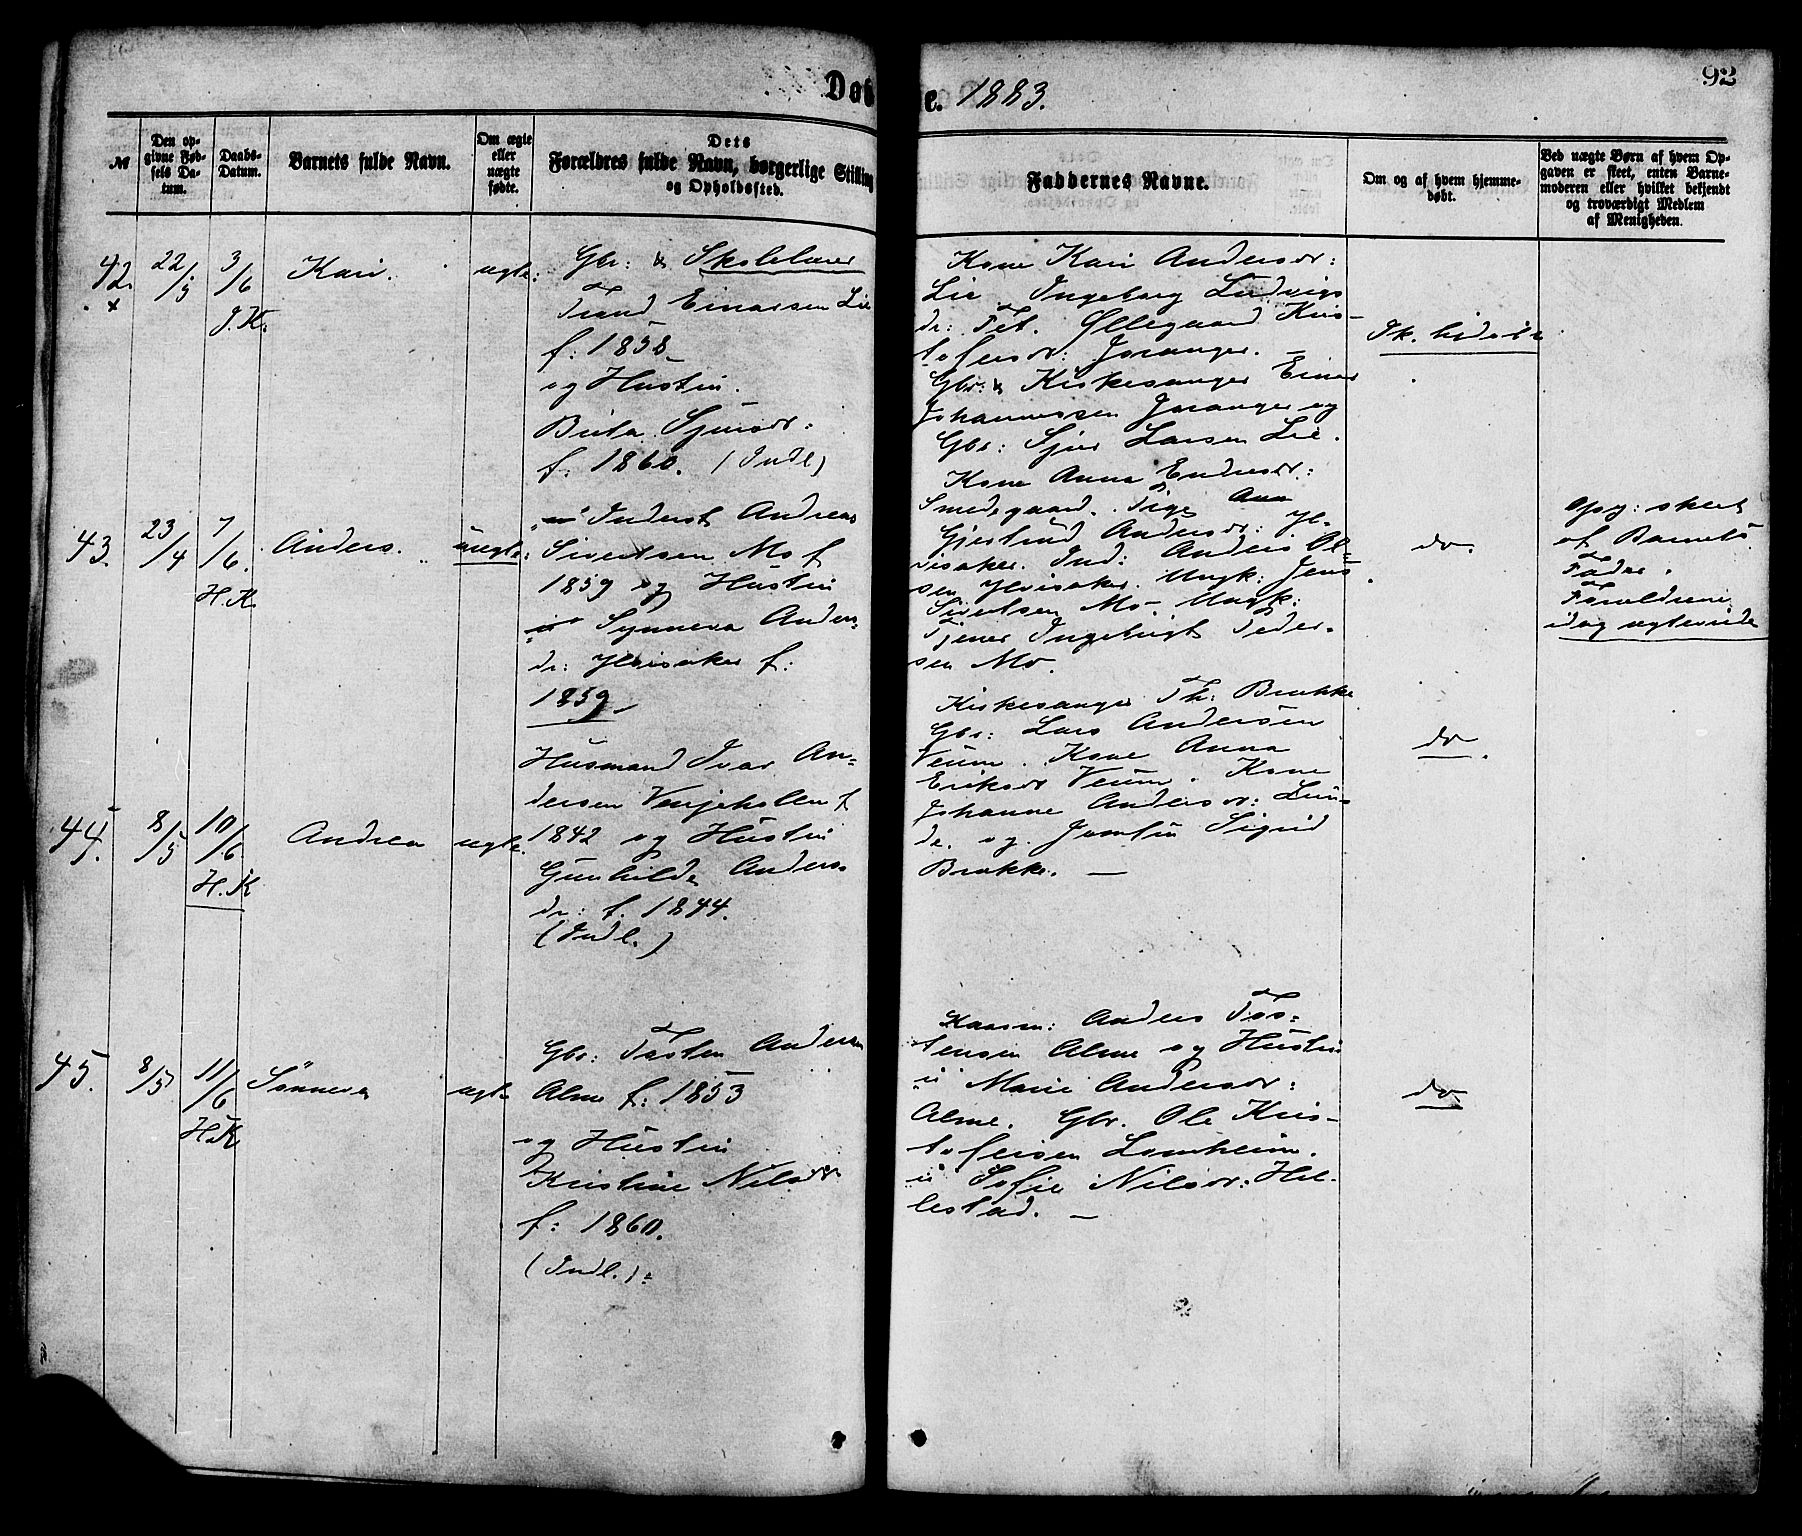 Døb
e. 1883.
92
№
Den op-
givne Fød-
sels Da-
tum.
Daabs-
Datum.
Barnets fulde Navn.
Om ægte
eller
uægte
født.
Dets
Forældres fulde Navn, borgerlige Stilling
og Opholdssted.
Faddernes Navne.
Om og af hvem hjemme-
døbt.
Ved uægte Børn af hvem Op-
gaven er skeet, enten Barne-
moderen eller hvilket bekjendt
og troværdigt Medlem
af Menigheden.
42.
22/5
3/6
Kari.
ægte:
Gbr: & Skolelærer
Trond Einarsen Lie
f: 1858
og Hustru
Brita Sjursdr:
f. 1860. (Indl)
Kone Kari Andersdr:
Lie Ingeborg Ludvigs
dr: Øllegaard Kris-
tofersdr: Joranger. —
Gbr: & Kirkesanger Einar
Johannessen Joranger og
Gbr: Sjur Larsen Lie.
43.
23/4
7/6.
H.K
Anders.
uægte:
Inderst Andreas
Sivertsen Mo f
1859 og Hustru
Synneva Anders
dr: Ylvisaker f:
1859
Kone Anna Endresdr:
Smedegaard. Pige
Gjertrud Andersdr: Yl-
visaker. Ind: Anders Ol-
sen Ylvisaker. Ungk: Jens
Sivertsen Mo. Ungk:
Tjener Ingebrigt Peder-
sen Mo.
do.
Opg: skeet
af Barnets
Fader.
Forældrene
idag ægteviede
44.
8/5
10/6
H.K
Andrea
ægte.
Husmand Ivar An-
dersen Venjeholen f
1842 og Hustru
Gunhilde Anders
dr: f. 1844.
(Indl.)
Kirkesanger Th: Brakke
Gbr: Lars Andersen
Veum. Kone Anna
Eriksdr Veum. Kone
Johanne Andersdr: Lin-
de. og Jomfru Sigrid
Brakke. —
do.
45.
8/5
11/6
H.K
Sønneva
ægte
Gbr: Tosten Andersen
Alme f: 1853
og Hustru
Kristine Nilsdr
f: 1860.
(Indl.):
Kaarm: Anders Tos-
tensen Alme og Hustru
" Marie Andersdr:
Alme. Gbr. Ole Kris-
tofersen Lomheim.
" Sofie Nilsdr: Hil-
lestad. —
do.